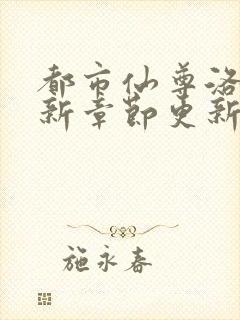 都市仙尊洛
新章节更新
施永春